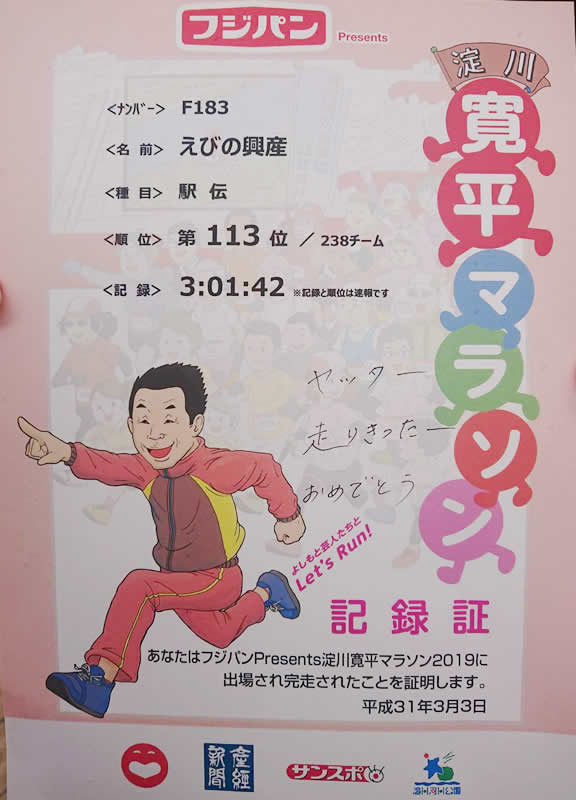 フジパン Presents
淀川
寛平マラソン
<ナンバー> F183
<名前> えびの興産
<種目> 駅伝
<順位> 第 113 位 / 238チーム
<記録> 3:01:42 ※記録と順位は速報です
ヤッター
走りきったー
おめでとう
よしもと芸人たちと
Let's Run!
記録証
あなたはフジパンPresents淀川寛平マラソン2019に
出場され完走されたことを証明します。
平成31年3月3日
産経新聞
サンスポ
淀川河川公園